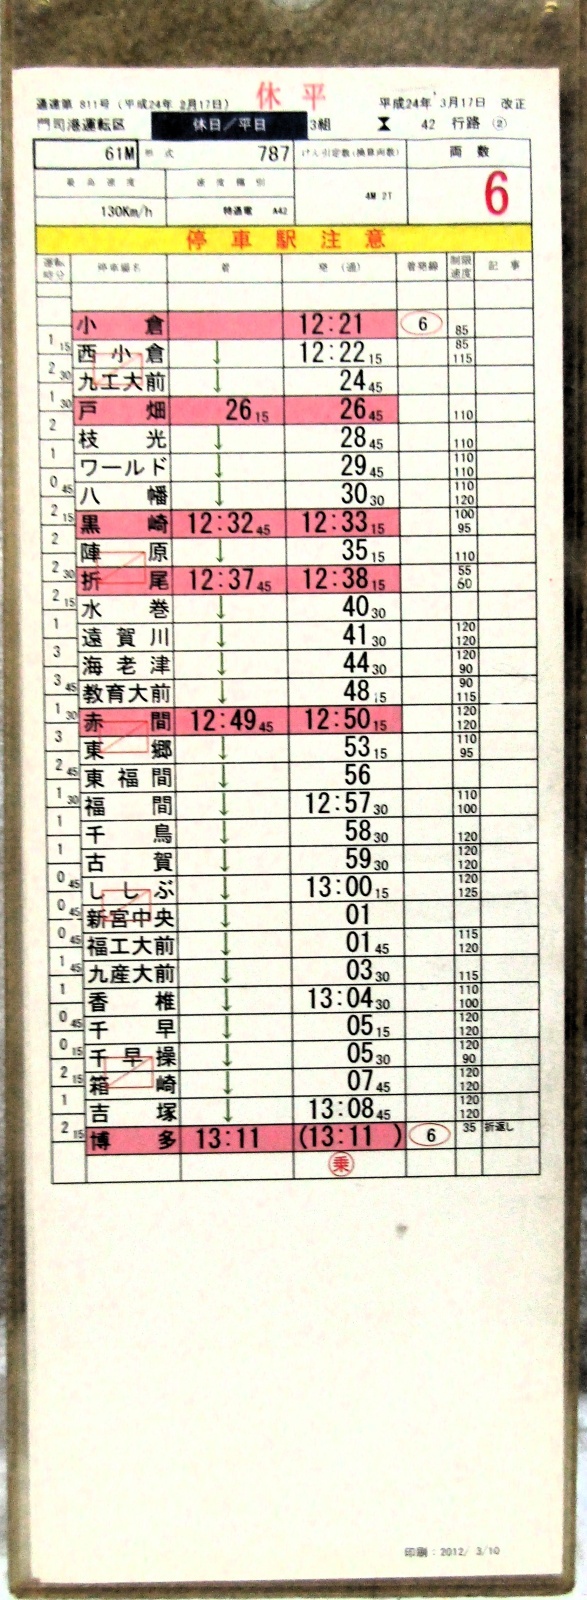 休平
運達第 811号 (平成24年 2月17日) 平成24年 3月17日 改正
門司港運転区 休日/平日 3組 42 行路 ②
61M 形式 787 けん引定数(換算両数) 両数
最高速度 速度種別 4M 2T 6
130Km/h 特通電 A42
停車駅注意
運転時分 停車場名 着 発(通) 着発線 制限速度 記事
小倉 12:21 6 85
1 15 西小倉 ↓ 12:22 15 85 115
2 30 九工大前 ↓ 24 45
1 30 戸畑 26 15 26 45 110
2 枝光 ↓ 28 45 110
1 ワールド ↓ 29 45 110 110
0 45 八幡 ↓ 30 30 110 120
2 15 黒崎 12:32 45 12:33 15 100 95
2 陣原 ↓ 35 15 110
2 30 折尾 12:37 45 12:38 15 55 60
2 15 水巻 ↓ 40 30
1 遠賀川 ↓ 41 30 120 120
3 海老津 ↓ 44 30 120 90
3 45 教育大前 ↓ 48 15 90 115
1 30 赤間 12:49 45 12:50 15 120 120
3 東郷 ↓ 53 15 110 95
2 45 東福間 ↓ 56
1 30 福間 ↓ 12:57 30 110 100
1 千鳥 ↓ 58 30 120
1 古賀 ↓ 59 30 120 120
0 45 ししぶ ↓ 13:00 15 120 125
0 45 新宮中央 ↓ 01
0 45 福工大前 ↓ 01 45 115 120
1 45 九産大前 ↓ 03 30 115
1 香椎 ↓ 13:04 30 110 100
0 45 千早 ↓ 05 15 120 120
0 15 千早操 ↓ 05 30 120 90
2 15 箱崎 ↓ 07 45 120 120
1 吉塚 ↓ 13:08 45 120 120
2 15 博多 13:11 (13:11) 6 35 折返し
乗
印刷:2012/ 3/10